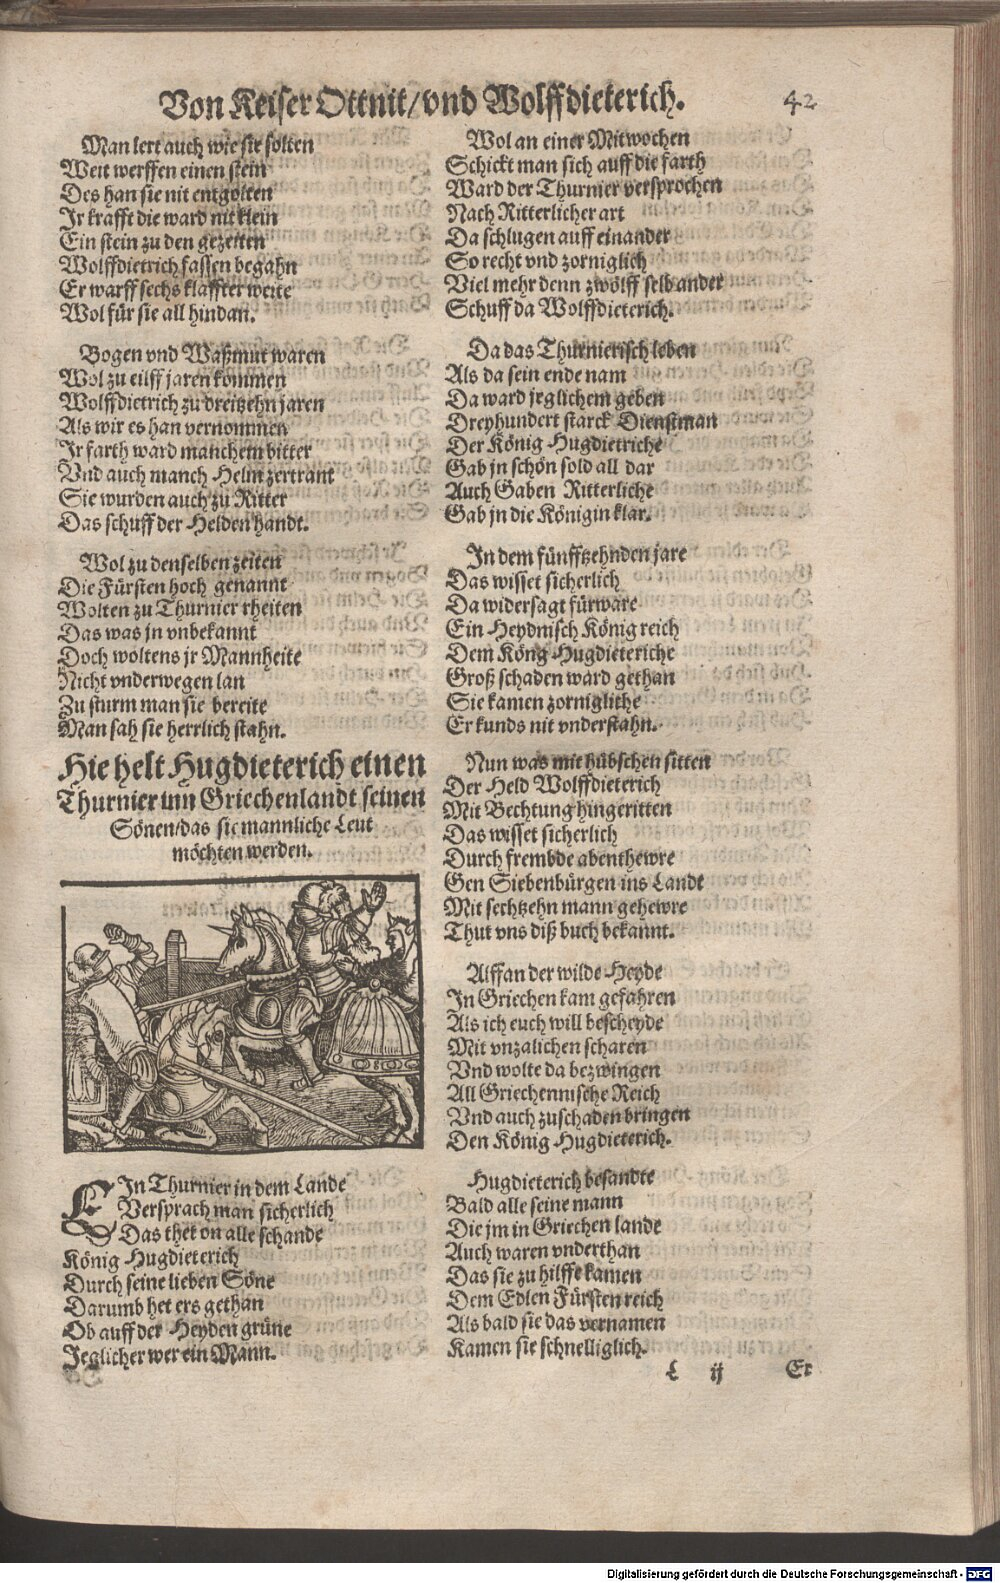 Von Keiser Ottnit/vnd Wolffdieterich.
42
Man lert auch wie sie solten
Weit werffen einen stein
Des han sie nit entgolten
Jr krafft die ward nit klein
Ein stein zu den gezeiten
Wolffdietrich fassen begahn
Er warff sechs klaffter weite
Wol für sie all hindan.
Bogen vnd Waßmut waren
Wol zu eilff jaren kommen
Wolffdietrich zu dreitzehn jaren
Als wir es han vernommen
Jr farth ward manchem bitter
Vnd auch manch Helm zertrant
Sie wurden auch zu Ritter
Das schuff der Helden handt.
Wol zu denselben zeiten
Die Fürsten hoch genannt
Wolten zu Thurnier rheiten
Das was jn vnbekannt
Doch woltens jr Mannheite
Nicht vnderwegen lan
Zu sturm man sie bereite
Man sah sie herrlich stahn.
Hie helt Hugdieterich einen
Thurnier inn Griechenlandt seinen
Sönen/das sie mannliche Leut
möchten werden.
EIn Thurnier in dem Lande
Versprach man sicherlich
Das thet on alle schande
König Hugdieterich
Durch seine lieben Söne
Darumb het ers gethan
Ob auff der Heyden grüne
Jeglicher wer ein Mann.
Wol an einer Mitwochen
Schickt man sich auff die farth
Ward der Thurnier versprochen
Nach Ritterlicher art
Da schlugen auff einander
So recht vnd zorniglich
Viel mehr denn zwölff selb ander
Schuff da Wolffdieterich.
Da das Thurnierisch leben
Als da sein ende nam
Da ward jeglichem geben
Dreyhundert starck Dienstman
Der König Hugdietriche
Gab jn schön sold all dar
Auch Gaben Ritterliche
Gab jn die Königin klar.
In dem fünfftzehnden jare
Das wisset sicherlich
Da widersagt fürware
Ein Heydnisch König reich
Dem Köng Hugdieteriche
Groß schaden ward gethan
Sie kamen zornigliche
Er kunds nit vnderstahn.
Nun was mit hübschen sitten
Der Held Wolffdieterich
Mit Bechtung hingeritten
Das wisset sicherlich
Durch frembde abenthewre
Gen Siebenbürgen ins Landt
Mit sechtzehn mann gehewre
Thut vns diß buch bekannt.
Alffan der wilde Heyde
In Griechen kam gefahren
Als ich euch will bescheyde
Mit vnzalichen scharen
Vnd wolte da bezwingen
All Griechennische Reich
Vnd auch zuschaden bringen
Den König Hugdieterich.
Hugdieterich besandte
Bald alle seine mann
Die jm in Griechen lande
Auch waren vnderthan
Das sie zu hilffe kamen
Dem Edlen Fürsten reich
Als bald sie das vernamen
Kamen sie schnelliglich.
L ij Er
Digitalisierung gefördert durch die Deutsche Forschungsgemeinschaft - DFG